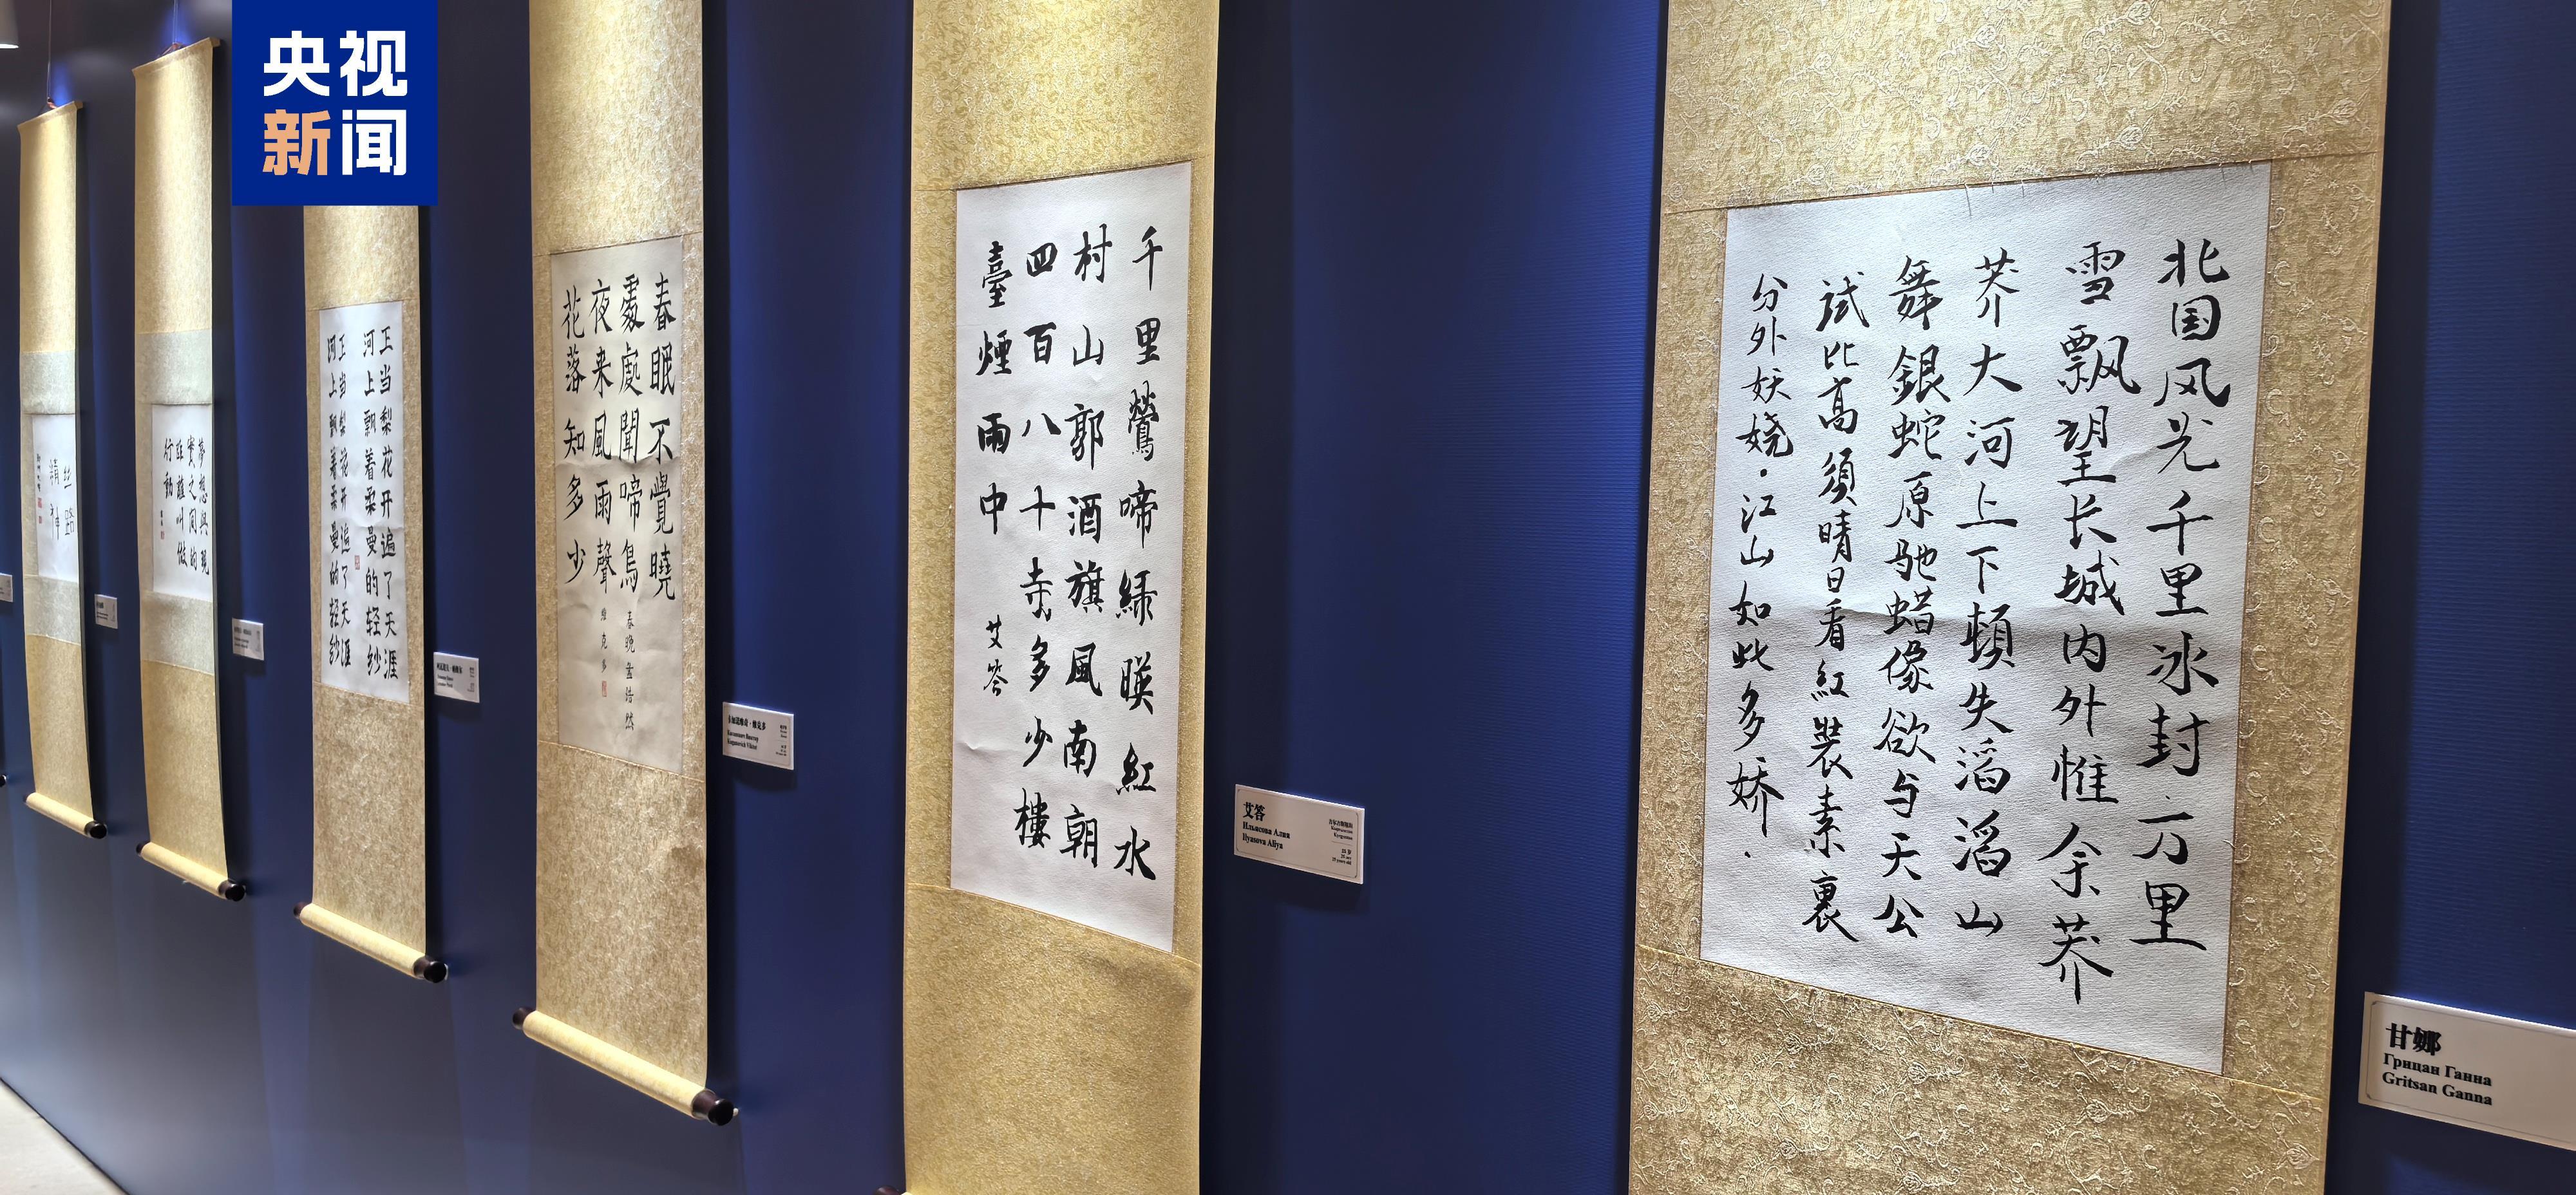 央视
新闻
丝路
精神
夢想與現
實之間的
距離叫做
行動
正当梨花开遍了天涯
河上飘着柔曼的轻纱
正当梨花开遍了天涯
河上飘着柔曼的轻纱
春眠不覺曉
處處聞啼鳥
夜来風雨聲
花落知多少
春晓孟浩然
维克多
千里鶯啼緑暎紅水
村山郭酒旗風南朝
四百八十寺多少樓
臺煙雨中
艾答
艾答
Ильясова Алия
Ilyasova Aliya
北国风光千里冰封万里
雪飘望长城内外惟余莽
莽大河上下頓失滔滔山
舞銀蛇原驰蜡像欲与天公
試比高須晴日看紅裝素裹
分外妖娆·江山如此多娇·
甘娜
Грицан Ганна
Gritsan Ganna